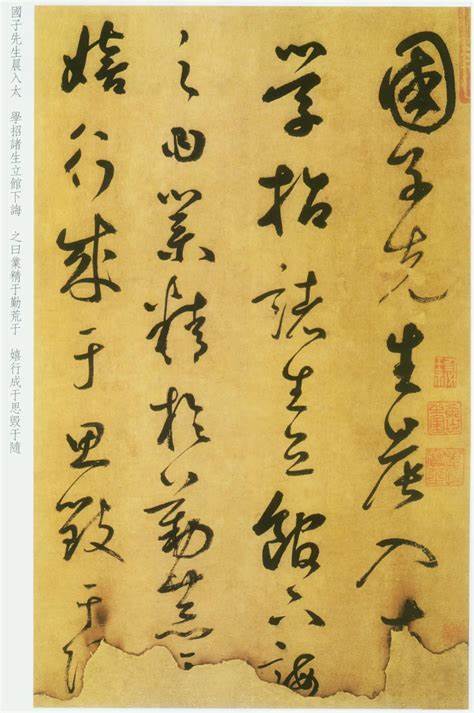 國子先生晨入太
學招諸生立館下誨
之曰業精於勤荒于
嬉行成于思毀于
國子先生晨入太　學招諸生立館下誨　之曰業精于勤荒于　嬉行成于思毀于隨